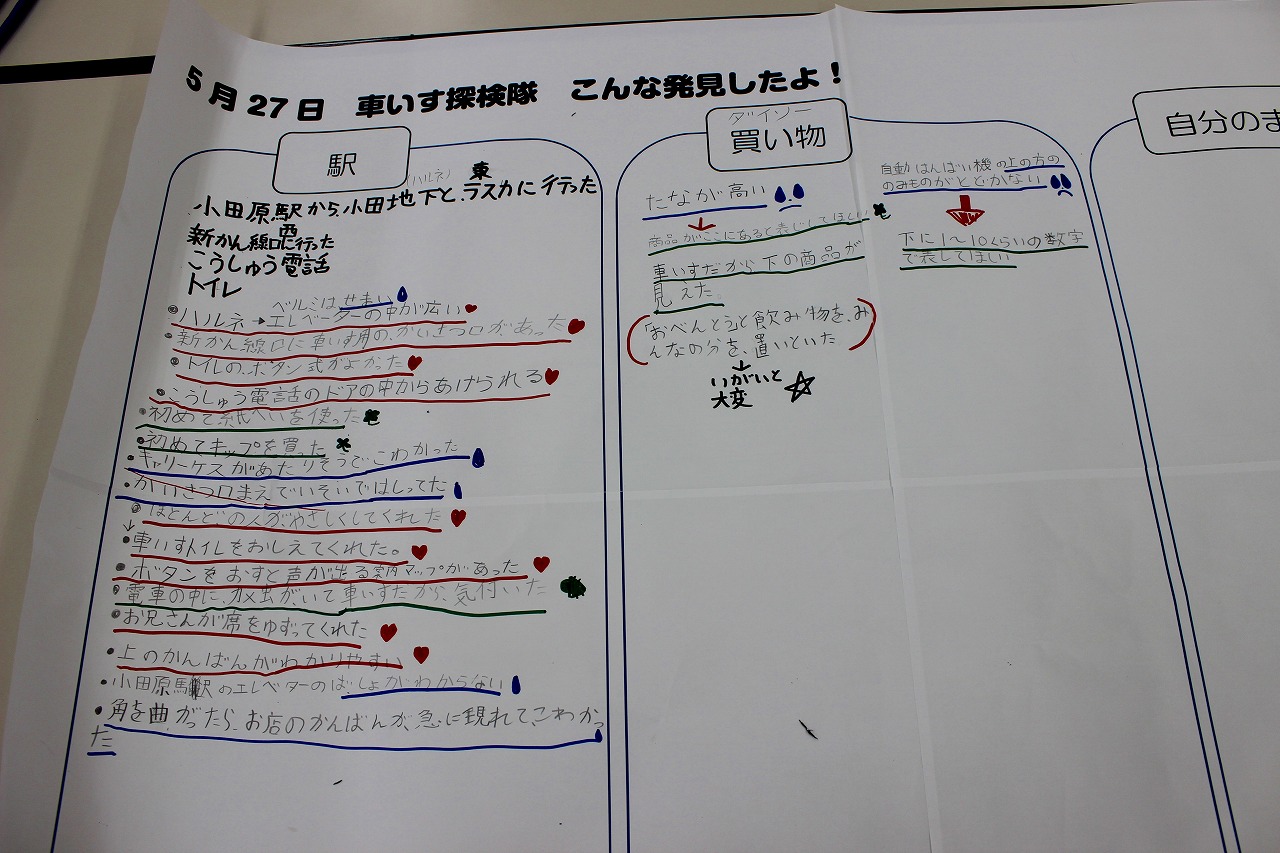 5月27日 車いす探検隊 こんな発見したよ!
駅
(ハルネ) 東
小田原駅から、小田地下と、ラスカに行った
西
新かん線口に行った
こうしゅう電話
トイレ
ベルミはせまい
ハルネ→エレベーターの中が広い
新かん線口に車いす用の、かいさつ口があった
トイレの、ボタン式がよかった
こうしゅう電話のドアの中からあけられる
初めて紙へいを使った
初めてキップを買った
キャリーケスがあたりそうでこわかった
かいさつ口まえでいそいではしってた
ほとんどの人が、やさしくしてくれた
車いすトイレをおしえてくれた。
ボタンをおすと声が出る案内マップがあった
電車の中に、虫がいて車いすだから、気付いた
お兄さんが席をゆずってくれた
上のかんばんがわかりやすい
小田原駅のエレベターのばしょがわからない
角を曲がったら、お店のかんばんが、急に現れてこわかっ
た
ダイソー
買い物
たなが高い
商品がここにあると表じしてほしい
車いすだから下の商品が
見えた
「おべんとうと飲み物を、み
んなの分を、置いといた
いがいと
大変
自動はんばい機の上の方の
のみものがとどかない
下に1〜10くらいの数字
で表してほしい
自分のま